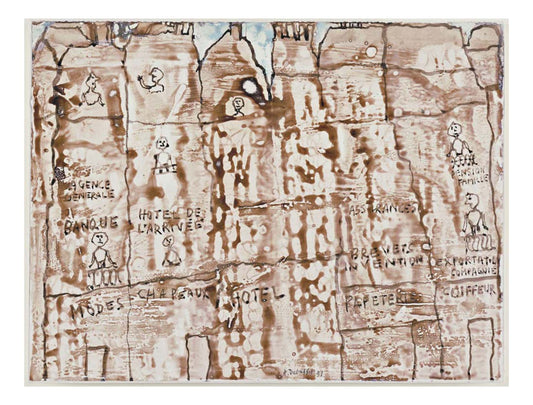 AGENCE
GENERALE
BANQUE
HOTEL DE
L'ARRIVÉE
PENSION
FAMILLE
ASSURANCES
BREVETS
INVENTION
EXPORTATION
COMPAGNIE
MODES
CHAPEAUX
HOTEL
PAPETERIE
COIFFEUR